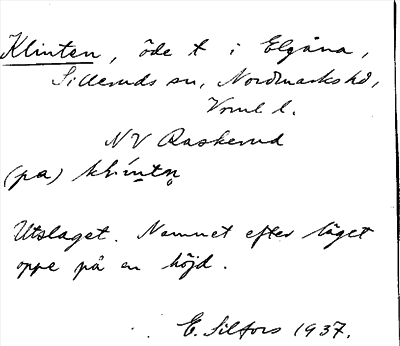 Klinten, öde t i Elgåna,
Silleruds sn, Nordmarks hd,
Vrml l.
NV Raskerud
(på) klíntn̥
Utslaget. Namnet efter läget
oppe på en höjd.
E. Silfors 1937.